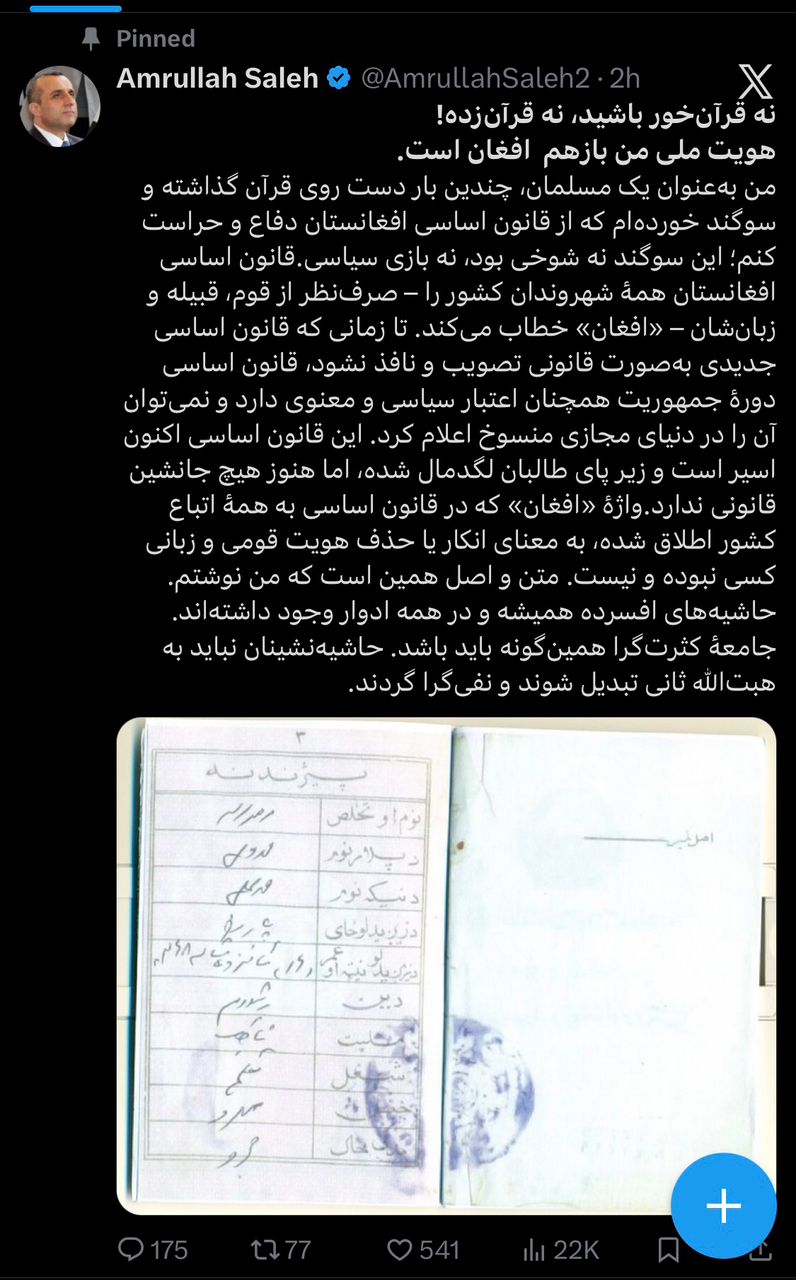 Pinned
Amrullah Saleh @AmrullahSaleh2 · 2h
نه قرآن‌خور باشید، نه قرآن‌زده!
هویت ملی من بازهم افغان است.
من به‌عنوان یک مسلمان، چندین بار دست روی قرآن گذاشته و
سوگند خورده‌ام که از قانون اساسی افغانستان دفاع و حراست
کنم؛ این سوگند نه شوخی بود، نه بازی سیاسی.قانون اساسی
افغانستان همهٔ شهروندان کشور را – صرف‌نظر از قوم، قبیله و
زبان‌شان – «افغان» خطاب می‌کند. تا زمانی که قانون اساسی
جدیدی به‌صورت قانونی تصویب و نافذ نشود، قانون اساسی
دورهٔ جمهوریت همچنان اعتبار سیاسی و معنوی دارد و نمی‌توان
آن را در دنیای مجازی منسوخ اعلام کرد. این قانون اساسی اکنون
اسیر است و زیر پای طالبان لگدمال شده، اما هنوز هیچ جانشین
قانونی ندارد.واژهٔ «افغان» که در قانون اساسی به همهٔ اتباع
کشور اطلاق شده، به معنای انکار یا حذف هویت قومی و زبانی
کسی نبوده و نیست. متن و اصل همین است که من نوشتم.
حاشیه‌های افسرده همیشه و در همه ادوار وجود داشته‌اند.
جامعهٔ کثرت‌گرا همین‌گونه باید باشد. حاشیه‌نشینان نباید به
هبت‌الله ثانی تبدیل شوند و نفی‌گرا گردند.
۳
پیژندنه
نوم او تخلص
د پلار نوم
د نیکه نوم
د زیږیدلو ځای
دین
ملیت
شغل
175 77 541 22K